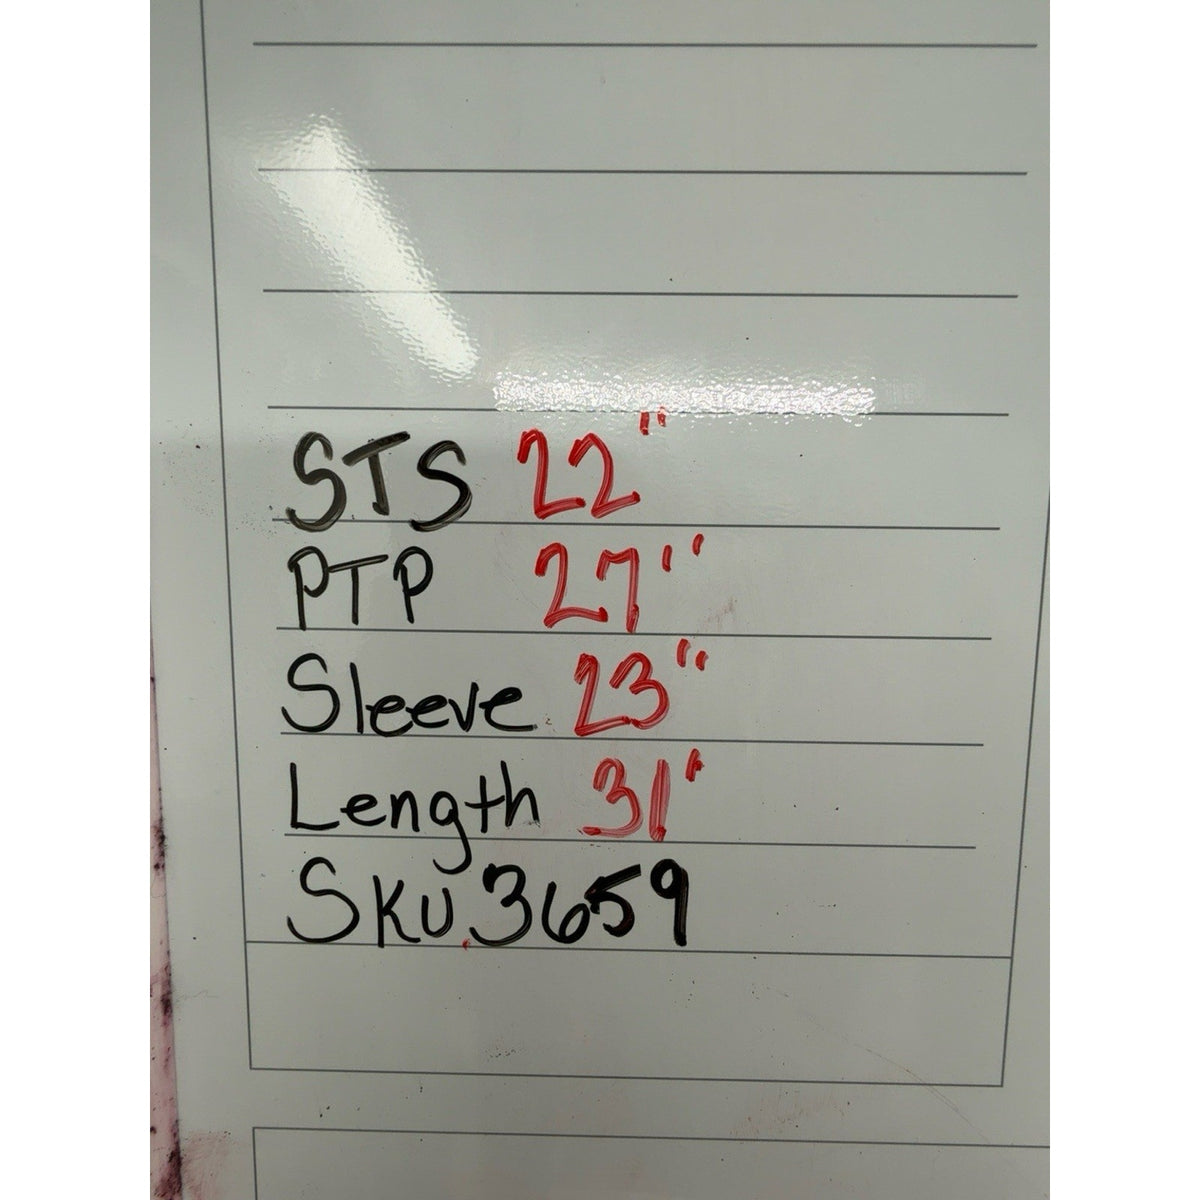 STS 22"
PTP 27"
Sleeve 23"
Length 31"
SKU 3659